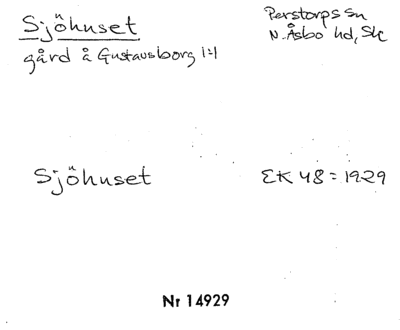 Sjöhuset
Perstorps Sn
gård å Gustavsborg 1:1
N. Åsbo hd, Sk
Sjöhuset
EK 48 = 1929
Nr 14929